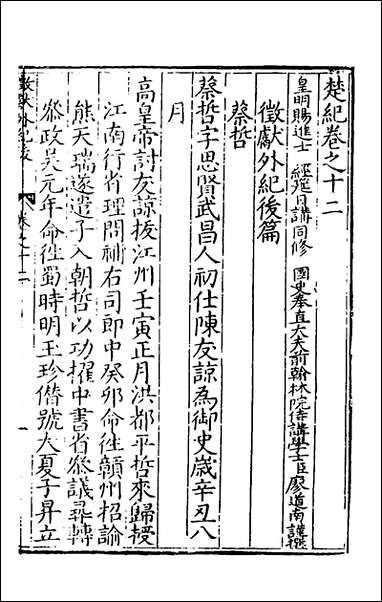 楚紀卷之十二
皇明賜進士 經筵日講同修 國史奉直大夫前翰林院侍講學士臣廖道南謹撰
徵獻外紀後篇
蔡哲
蔡哲字思賢武昌人初仕陳友諒為御史歲辛丑八
月
高皇帝討友諒拔江州壬寅正月洪都平哲來歸授
江南行省理問補右司郎中癸卯命往贛州招諭
熊天瑞遂遣子入朝哲以功擢中書省叅議尋轉
叅政吳元年命徃蜀時明玉珍僭號大夏子昇立
徵獻外紀後
卷之十二